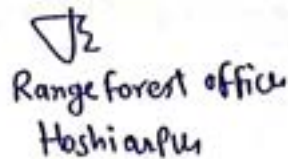 Range forest office
Hoshiarpur